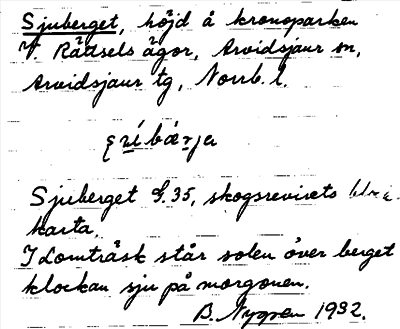 Sjuberget, höjd å kronoparken
V. Rådsels ägor, Arvidsjaur sn,
Arvidsjaur tg, Norrb. l.
Sjuberget G.35, skogsrevirets
karta.
I Lomträsk står solen över berget
klockan sju på morgonen.
B. Nygren 1932.